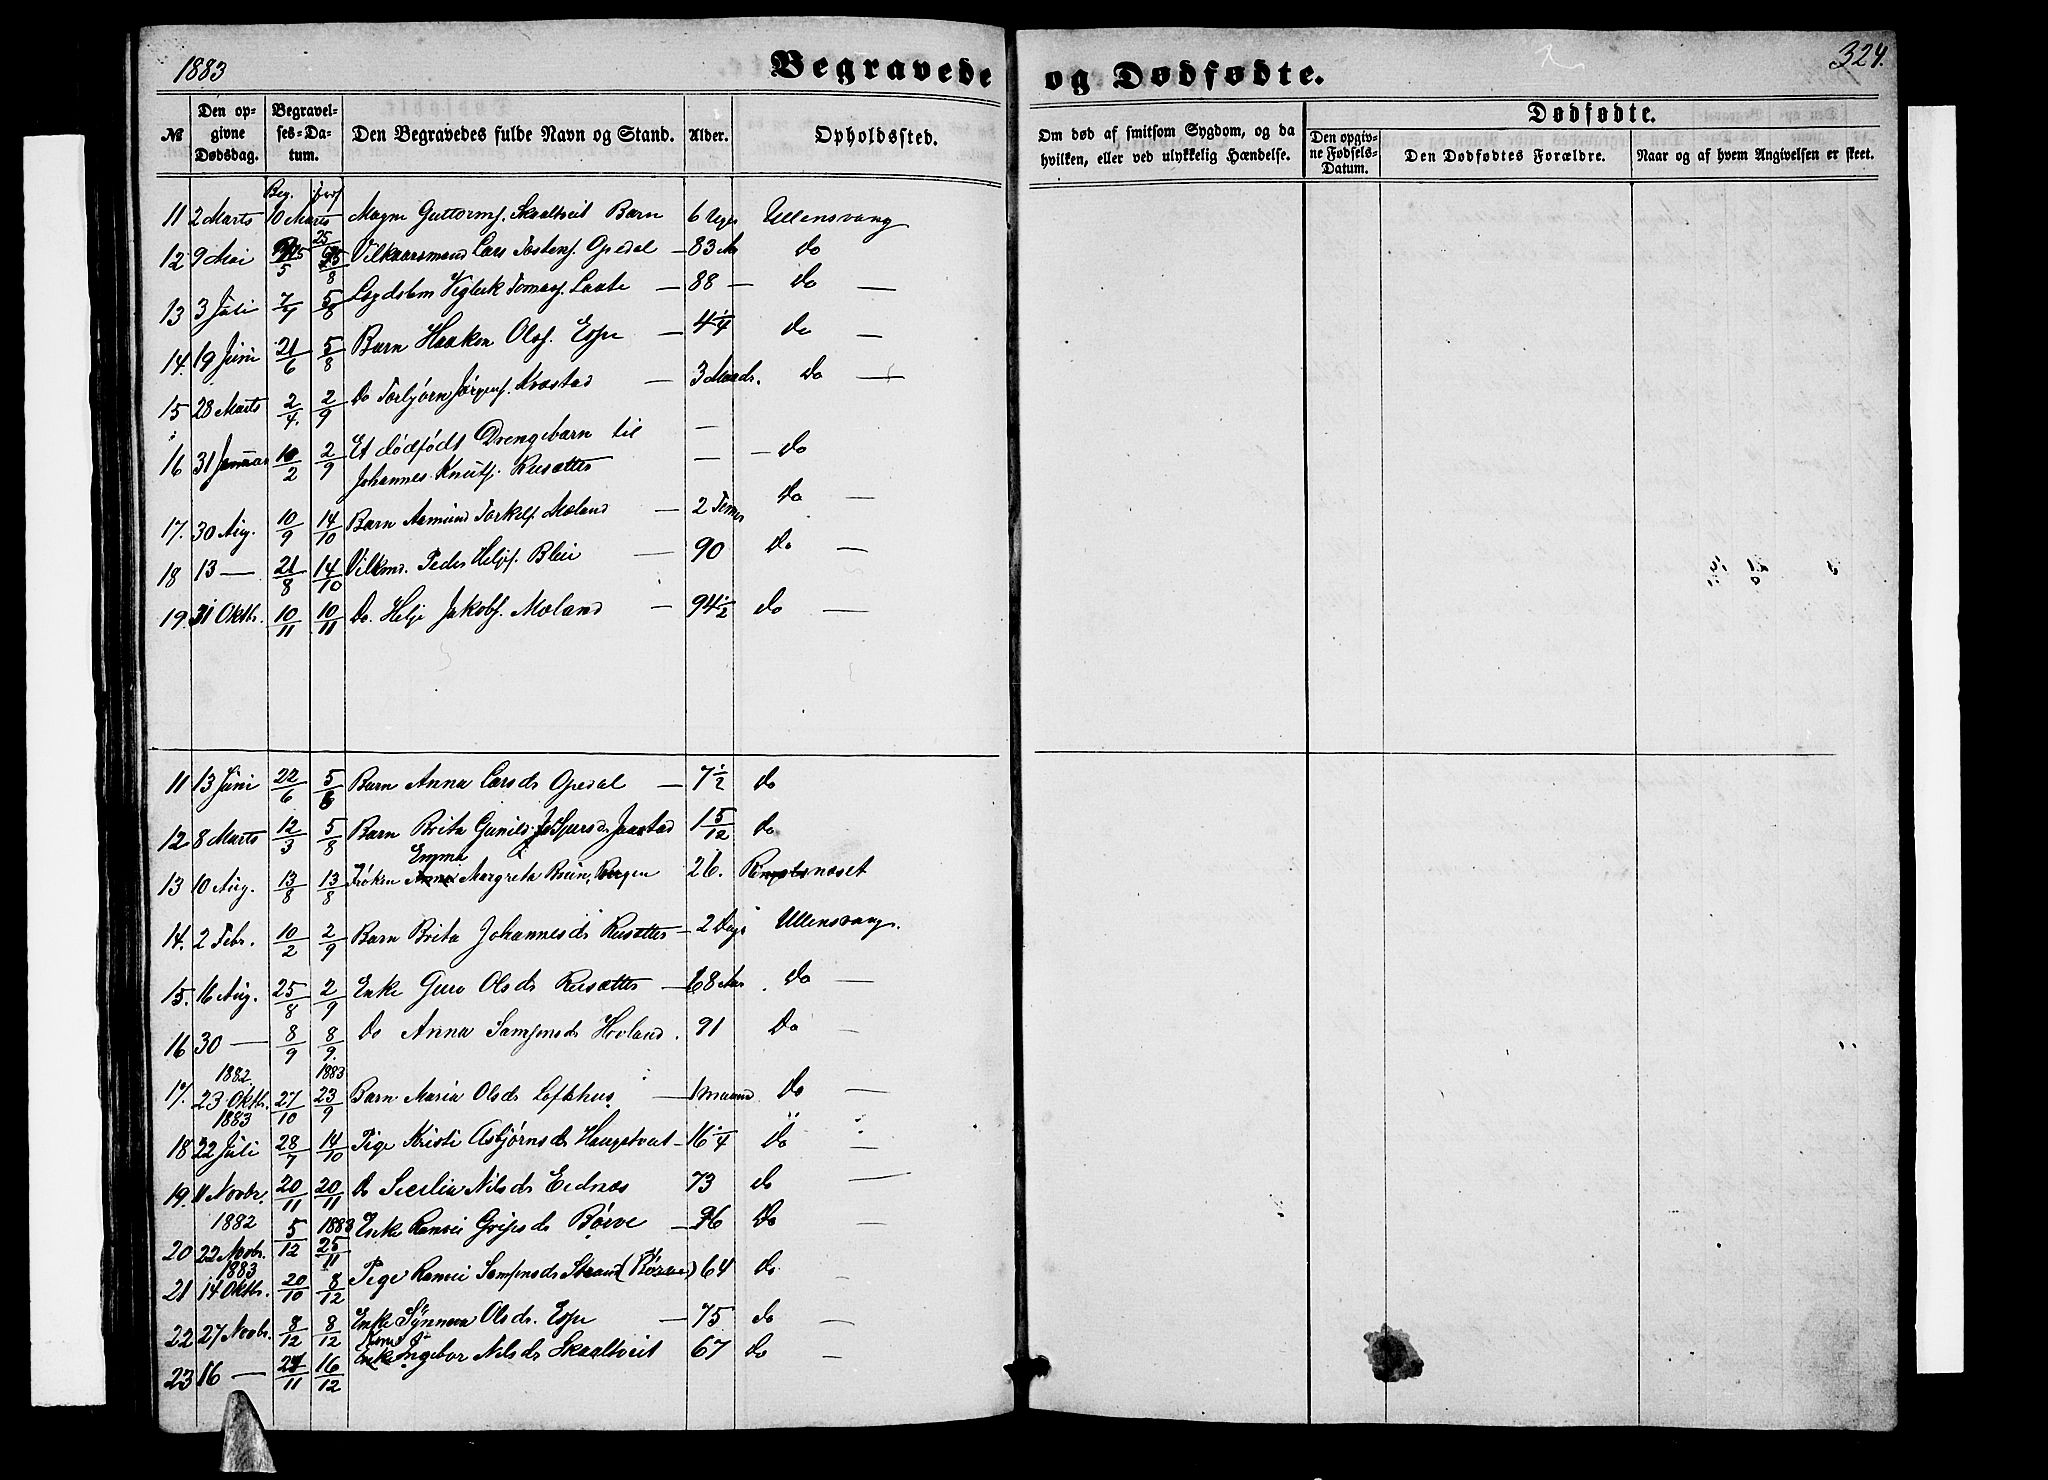 1883
Begravede og Dødfødte.
324.
№ Den opgivne Dødsdag. Begravelses-Datum. Den Begravedes fulde Navn og Stand. Alder. Opholdssted.
Om død af smitsom Sygdom, og da hvilken, eller ved ulykkelig Hændelse.
Dødfødte.
Den opgivne Fødsels-Datum. Den Dødfødtes Forældre. Naar og af hvem Angivelsen er skeet.
Beg. Jordf
11 2 Marts 10 Marts Magne Guttormf. Skaaltveit Barn 6 Uger Ullensvang
12 9 Mai Vilkaarsmand Lars Tostenf. Opedal — 83 Aar do
13 3 Juli 7/7 5/8 Lægdslem Vigleik Tomasf. Laate — 88 — do —
14. 19 Juni 21/6 5/8 Barn Haaken Olsf. Espe — 4 1/4 do —
15 28 Marts 2/4. 2/9 Do Torbjørn Jørgenf. Kvestad — 3 Maadr. do —
16 31 Januar 10/2 2/9 Et dødfødt Drengebarn til —
Johannes Knutf. Reisæter — — do
17. 30 Aug. 10/9 14/10 Barn Aamund Torkelf. Mæland — 2 Timer do —
18 13 — 21/8 14/10 Vilkmd. Peder Heljef. Bleie — 90 do —
19. 31 Oktbr. 10/11 10/11 Do. Helje Jakobf. Mæland — 94 1/2 do —
11 13 Juni 22/6 5/8 Barn Anna Larsdr Opedal — 7 1/2 do
12 8 Marts 12/3 5/8 Barn Brita Gunild Jespersdr Jaastad 1 5/12 do
Emma
13 10 Aug. 13/8 13/8 Frøken Anna Margreta Bruun, Bergen 26. Ringøsnæset
14. 2 Febr. 10/2 2/9 Barn Brita Johannesdr Reisæter — 2 Dage Ullensvang.
15. 16 Aug. 25/8 2/9 Enke Guro Olsdr Reisæter — 68 Aar do —
16 30 — 8/9 8/9. Do Anna Samsonsdr Hovland. 91 Do —
1882 1883
17. 23 Oktbr. 27/10 23/9 Barn Maria Olsdr Lofthus — 1 maaned do —
1883
18 22 Juli 28/7 14/10 Pige Kristi Asbjørnsdr Haugstveit — 16 1/4 do —
19. 11 Novbr. 20/11 20/11 Do Secilia Nilsdr Eidnæs 73 do —
1882 1883
20 22 Novbr. 5/12 25/11 Enke Ranvei Gripsdr Børve — 96 Do —
1883
21 14 Oktbr. 20/10 8/12 Pige Ranvei Samsonsdr Strand (Børve) 64 do —
22 27 Novbr. 8/12 8/12 Enke Synneva Olsdr. Espe — 75 do —
Kone
23 16 — 24/11 16/12 Enke Ingebor Nilsdr Skaaltveit 67 do —